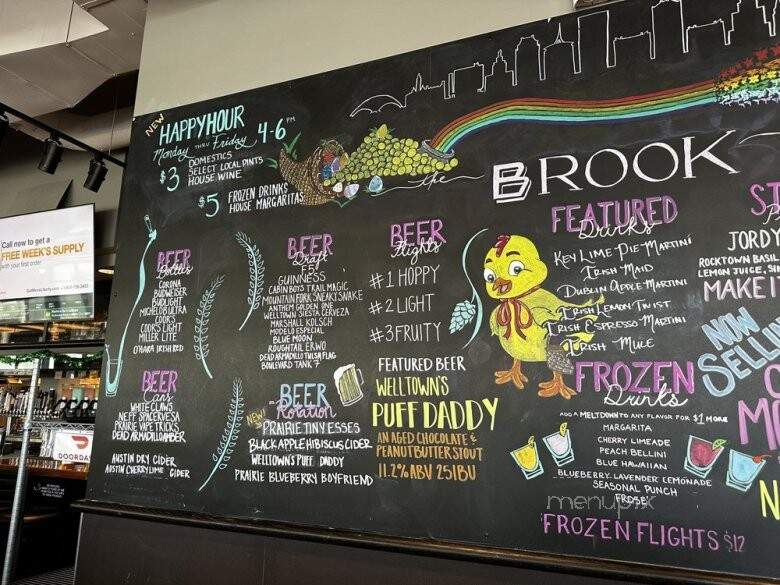 NEW
HAPPY HOUR
Monday THRU Friday 4-6 PM
$3 DOMESTICS
SELECT LOCAL PINTS
HOUSE WINE
$5 FROZEN DRINKS
HOUSE MARGARITAS
Call now to get a
FREE WEEK'S SUPPLY
with your first order
the BROOK
BEER
Bottles
CORONA
BUDWEISER
BUDLIGHT
MICHELOB ULTRA
COORS
COORS LIGHT
MILLER LITE
O'HARA IRISH RED
BEER
Cans
WHITE CLAWS
NEFF SPACEVESA
PRAIRIE VAPE TRICKS
DEAD ARMADILLO AMBER
AUSTIN DRY CIDER
AUSTIN CHERRY LIME CIDER
BEER
Draft
F5
GUINNESS
CABIN BOYS TRAIL MAGIC
MOUNTAIN FORK SNEAKY SNAKE
ANTHEM GOLDEN ONE
WELLTOWN SIESTA CERVEZA
MARSHALL KOLSCH
MODELO ESPECIAL
BLUE MOON
ROUGHTAIL ERWO
DEAD ARMADILLO TULSA FLAG
BOULEVARD TANK 7
NEW!
BEER
Rotation
PRAIRIE TINY ESSES
BLACK APPLE HIBISCUS CIDER
WELLTOWN'S PUFF DADDY
PRAIRIE BLUEBERRY BOYFRIEND
BEER
Flights
#1 HOPPY
#2 LIGHT
#3 FRUITY
FEATURED BEER
WELLTOWN'S
PUFF DADDY
AN AGED CHOCOLATE &
PEANUT BUTTER STOUT
11.2% ABV 25 IBU
FEATURED
Drinks
KEY LIME PIE MARTINI
IRISH MAID
DUBLIN APPLE MARTINI
IRISH LEMON TWIST
IRISH ESPRESSO MARTINI
IRISH MULE
FROZEN
Drinks
ADD A MELTDOWN TO ANY FLAVOR FOR $1 MORE
MARGARITA
CHERRY LIMEADE
PEACH BELLINI
BLUE HAWAIIAN
BLUEBERRY LAVENDER LEMONADE
SEASONAL PUNCH
FROSÉ
FROZEN FLIGHTS $12
ST
JORDY
ROCKTOWN BASIL
LEMON JUICE, S
MAKE IT
NOW
SELLIN
DOORDAS
menupix